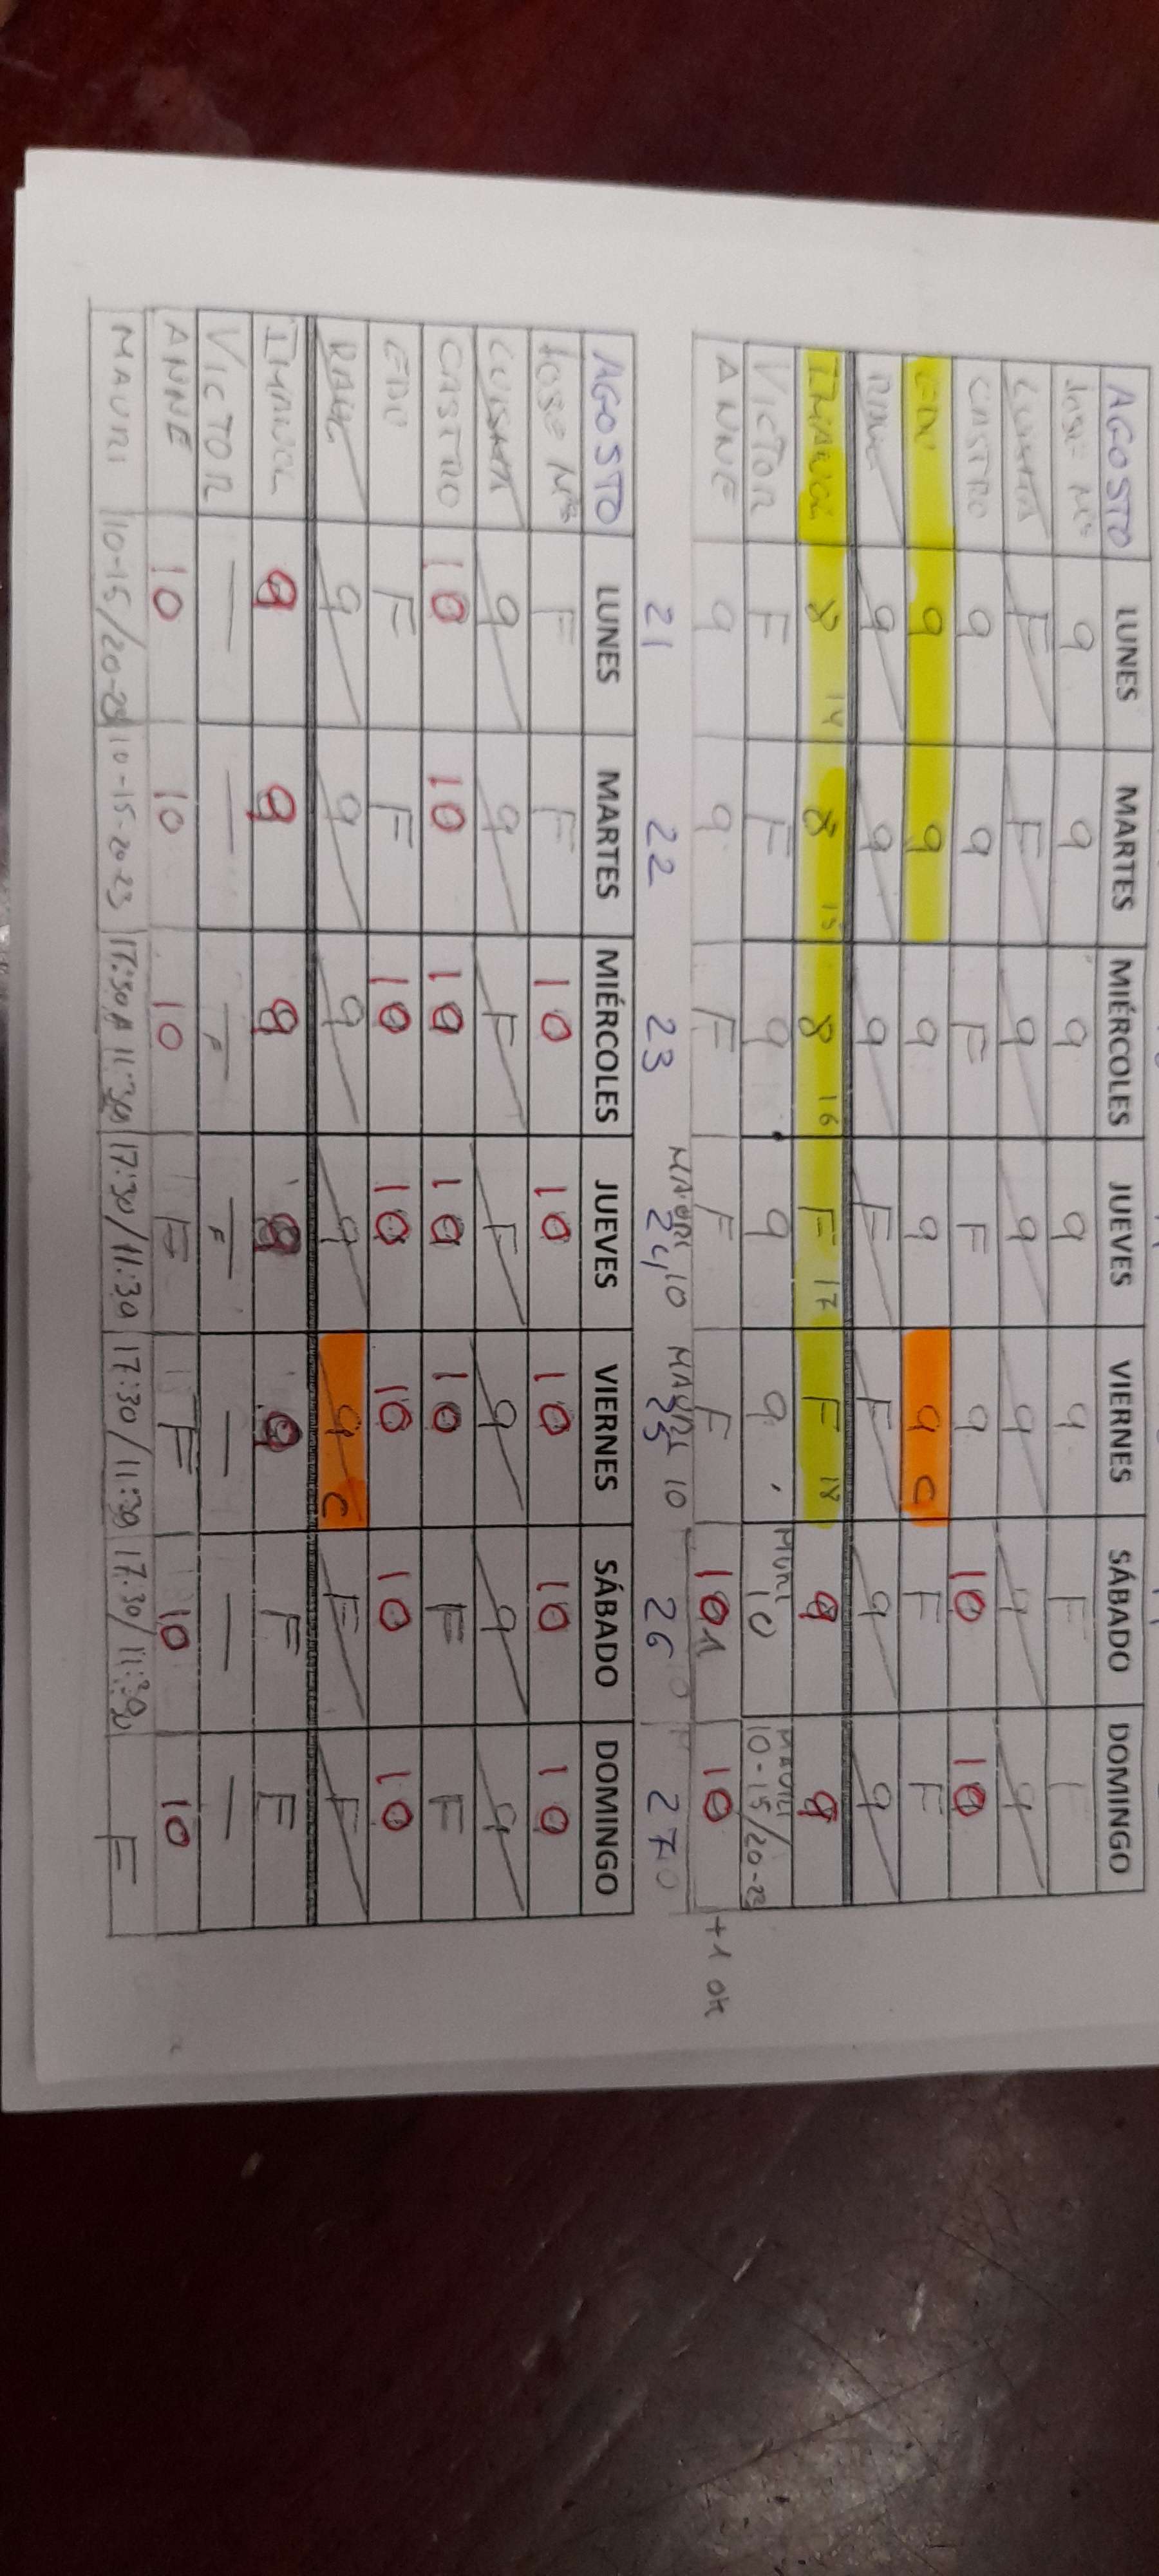 AGOSTO LUNES MARTES MIÉRCOLES JUEVES VIERNES SÁBADO DOMINGO
JOSE Mª 9 9 9 9 9 F
F F 9 9 9 9 9
CASTRO 9 9 F F 9 10 10
EDU 9 9 9 9 9 C F F
9 9 9 F F 9 9
IMANOL 8 14 8 15 8 16 F 17 F 18 9 9
VICTOR F F 9 9 9 10 MAURI 10-15/20-23
ANNE 9 9 F F F 10 1 10 +1 OK
MAURI 10 MAURI 10
21 22 23 24 25 26 27
AGOSTO LUNES MARTES MIÉRCOLES JUEVES VIERNES SÁBADO DOMINGO
JOSE Mª F F 10 10 10 10 10
9 9 F F 9 9 9
CASTRO 10 10 10 10 10 F F
EDU F F 10 10 10 10 10
9 9 9 9 9 C F F
IMANOL 9 9 9 9 9 F F
VICTOR — — F F — — —
ANNE 10 10 10 F F 10 10
MAURI 10-15/20-23 10-15-20-23 17:30 A 11:30 17:30/11:30 17:30/11:30 17:30/11:30 F